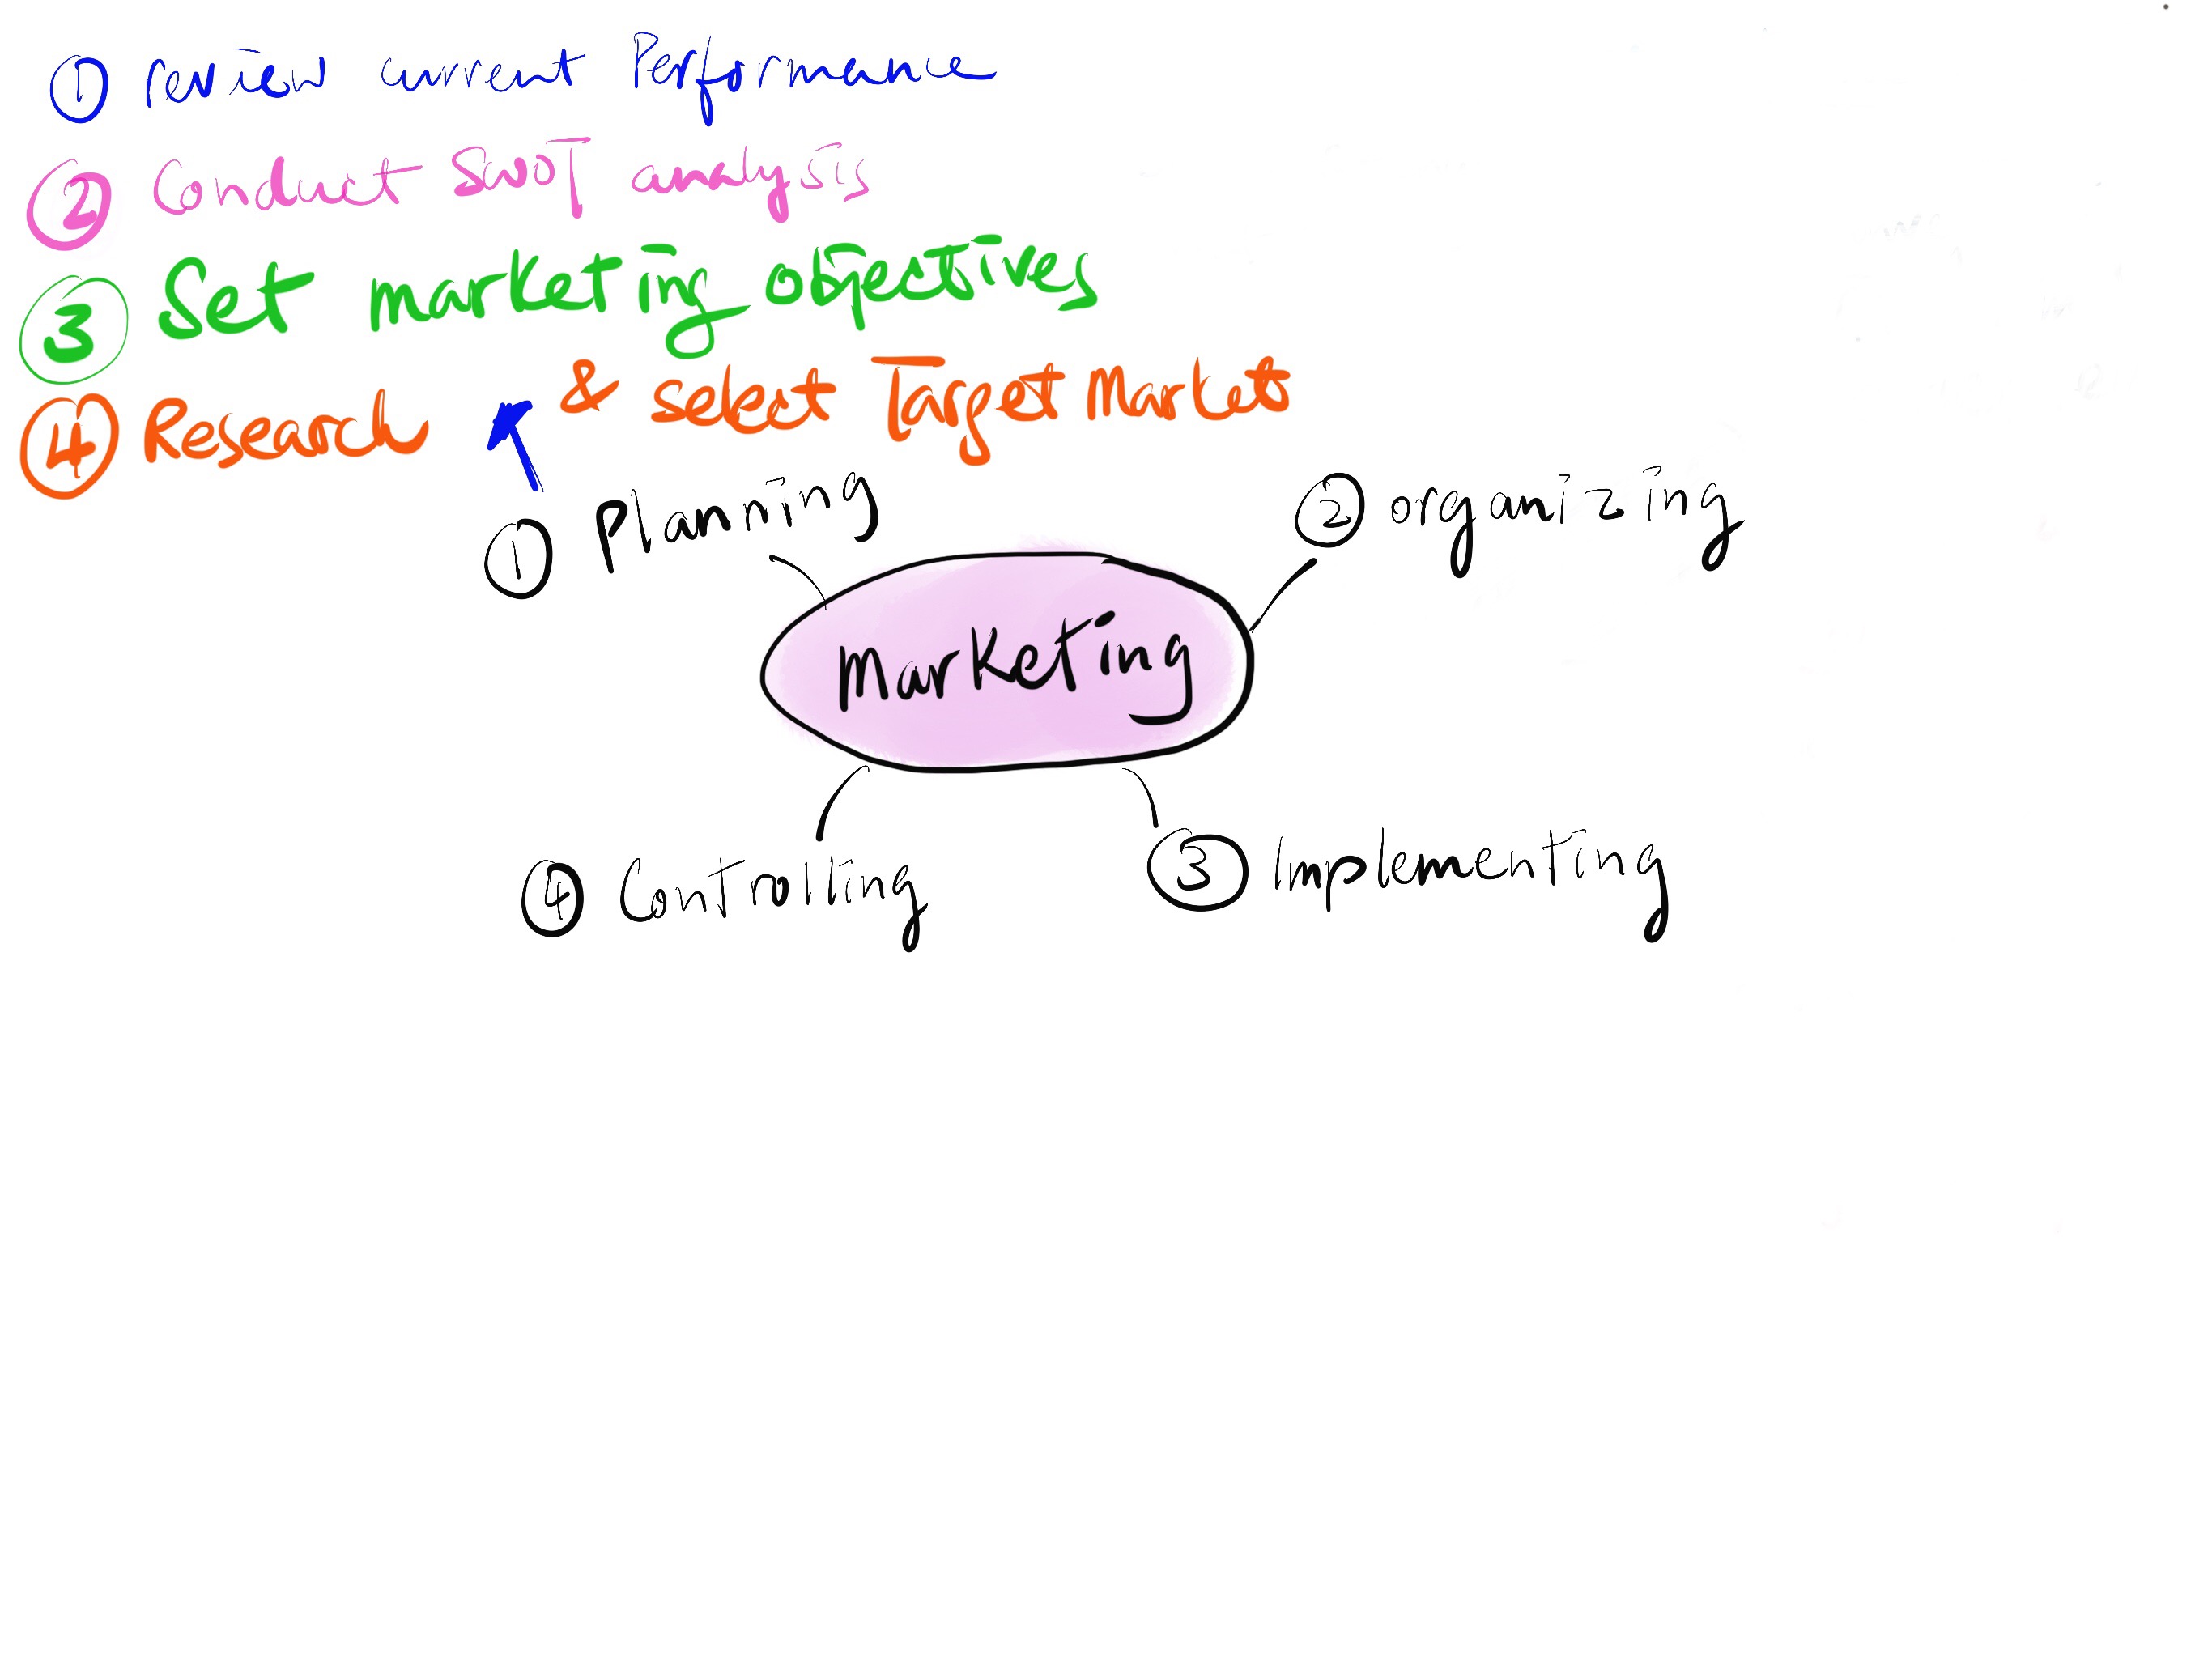 ① review current Performance
② Conduct SWOT analysis
③ Set marketing objectives
④ Research & select Target Market
① Planning
② organizing
Marketing
④ Controlling
③ Implementing